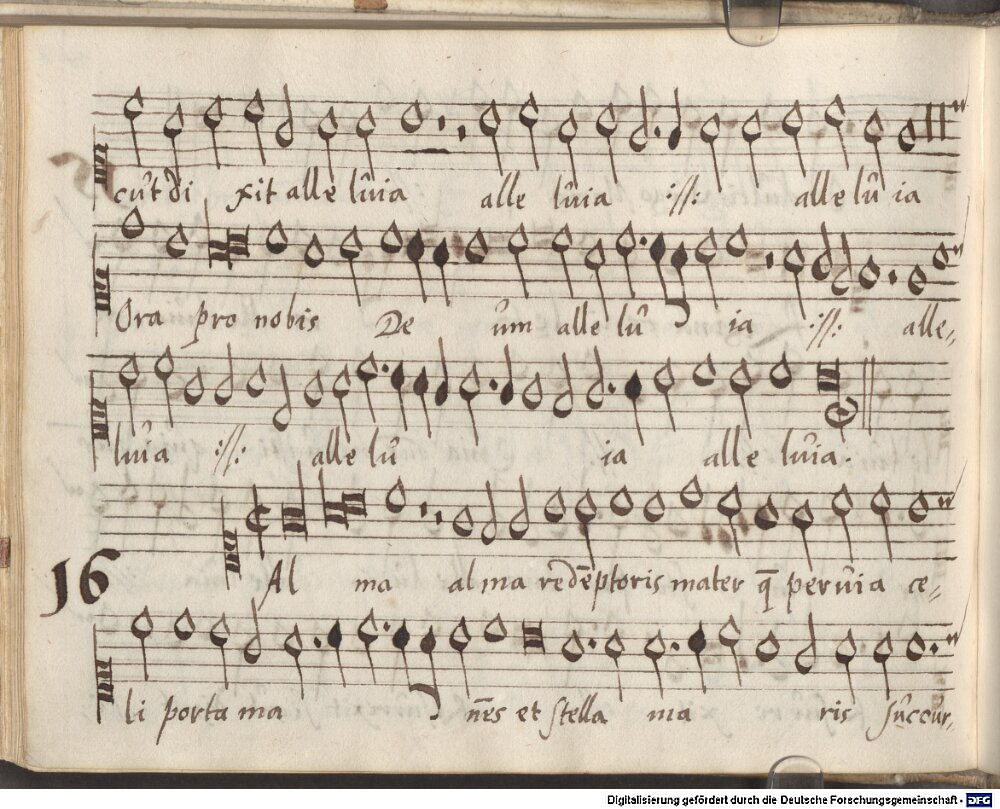 cūt di xit alle lūia alle lūia :// : alle lū ia
Ora pro nobis De ūm alle lū ia :// : alle-
lūia :// : alle lū ia alle lūia.
16 Al ma alma redēptoris mater q̄ pervia ce-
li porta ma nēs et stella ma ris sūccur-
Digitalisierung gefördert durch die Deutsche Forschungsgemeinschaft - DFG